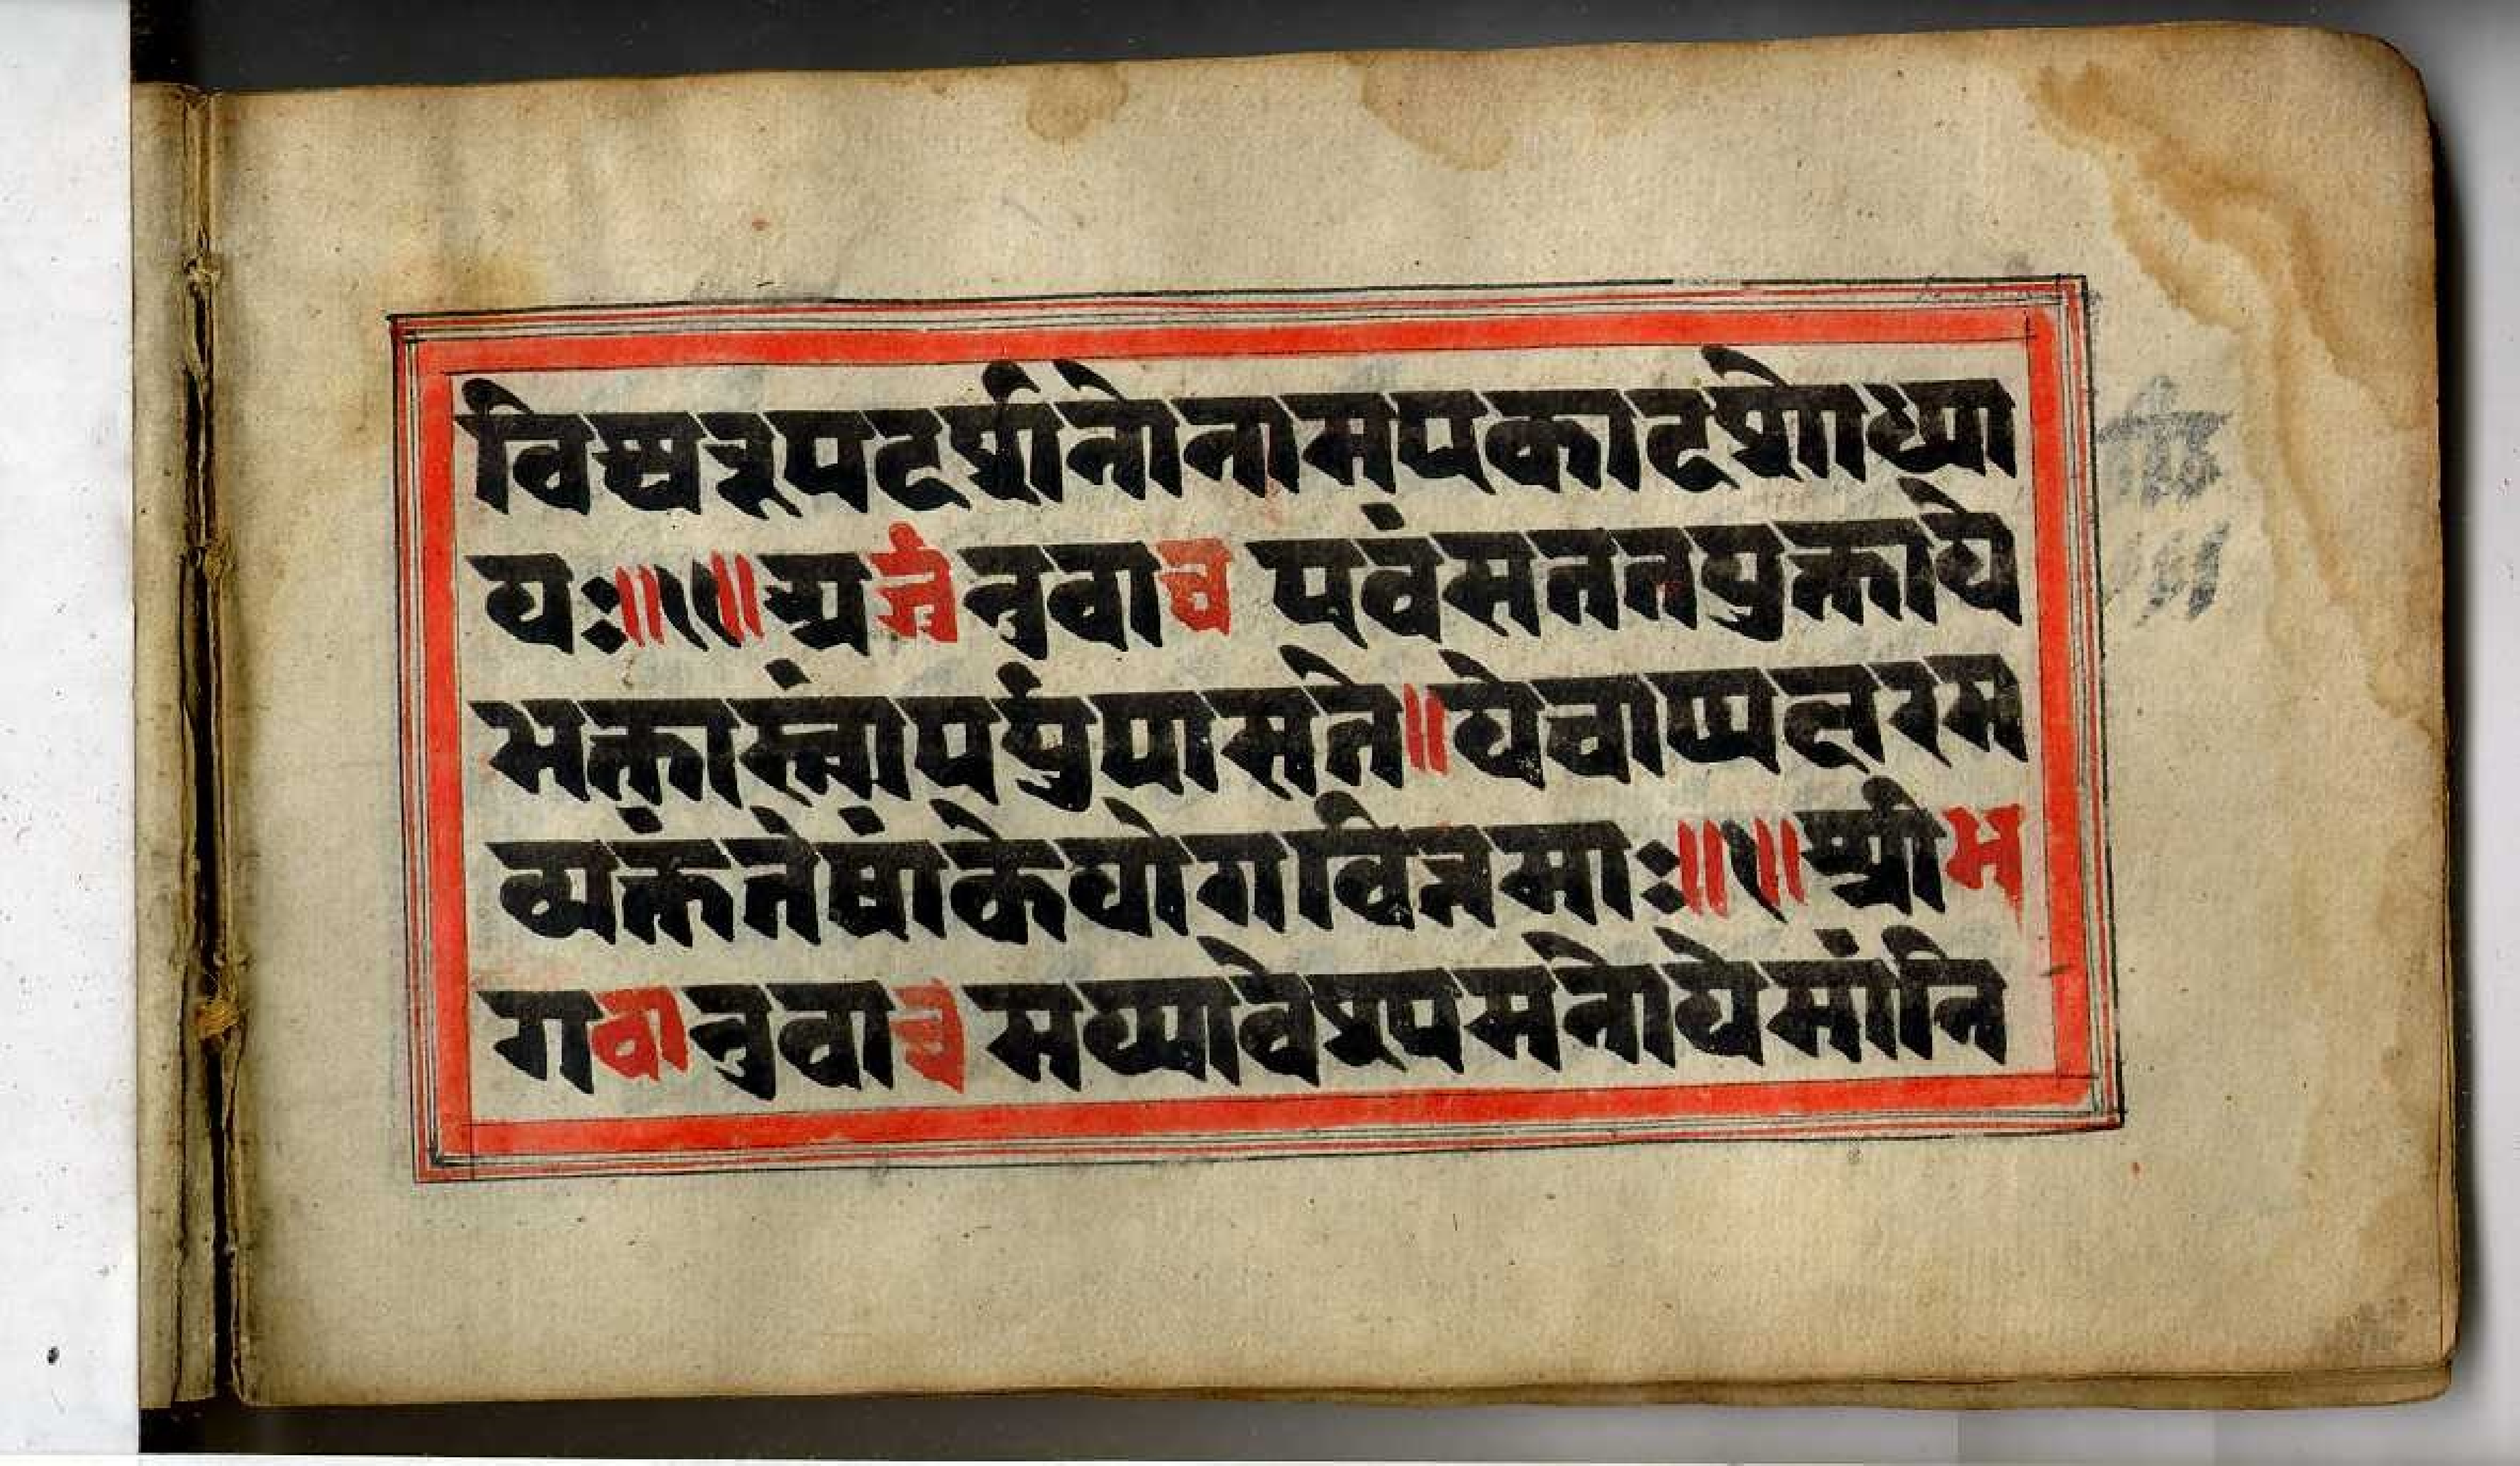 विश्वरूपदर्शनोनामएकादशोध्या
यः॥११॥अर्जुनउवाच एवंसततयुक्ताये
भक्तास्त्वांपर्युपासते॥येचाप्यक्षरम
व्यक्तंतेषांकेयोगवित्तमाः॥१॥श्रीभ
गवानुवाच मय्यावेश्यमनोयेमांनि